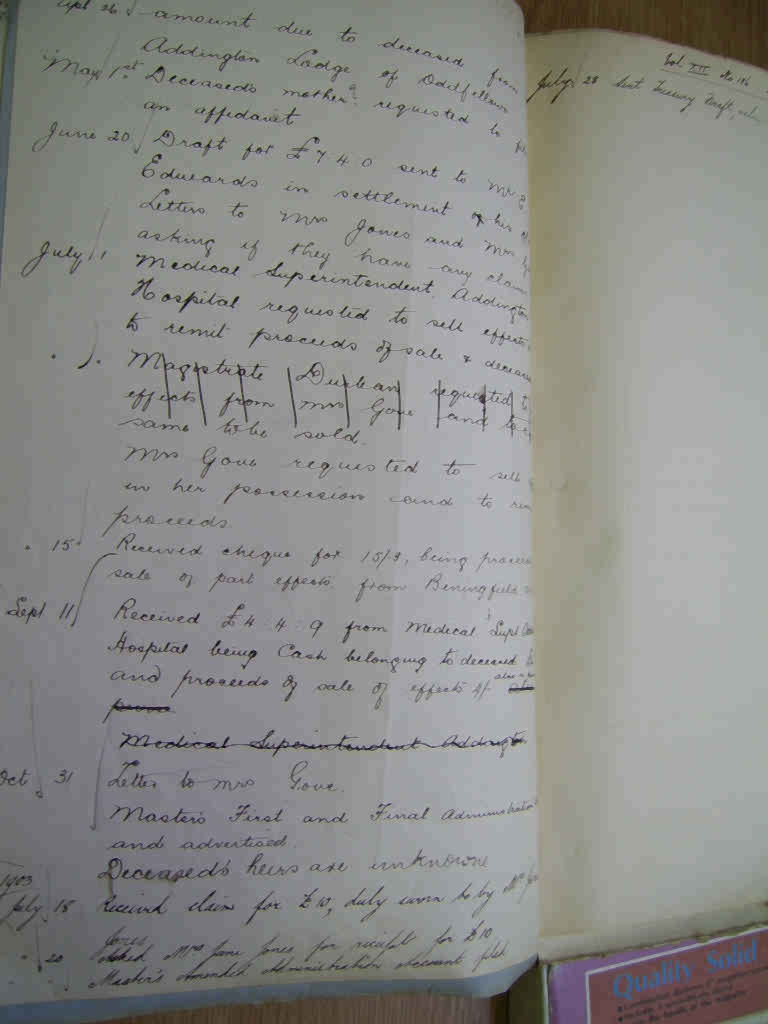 Apl 26 amount due to deceased from
Addington Lodge of Oddfellows
May 1st Deceased's mother requested to
an affidavit
June 20 Draft for £7 4 0 sent to Mr
Edwards in settlement of her
Letters to Mrs Jones and Mrs
asking if they have any claim
July 1 Medical Superintendent, Addington
Hospital requested to sell effects
to remit proceeds of sale &
Magistrate Durban requested to
effects from Mrs Gove and to
same to be sold.
Mrs Gove requested to sell
in her possession and to
proceeds.
" 15 Received cheque for 15/9, being
sale of part effects from Beningfield
Sept 11 Received £4 : 4 : 9 from Medical Supt
Hospital being Cash belonging to deceased
and proceeds of sale of effects
Medical Superintendent Addington
Oct 31 Letter to Mrs Gove.
Master's First and Final Administration
and advertised.
Deceased's heirs are unknown
1903
July 18 Received claim for £10, duly sworn to by Mrs
Jones
" 20 Asked Mrs Jane Jones for receipt for £10
Master's Amended Administration Account filed
Vol. XII No 186
July 28 Sent Treasury Draft,
Quality Solid